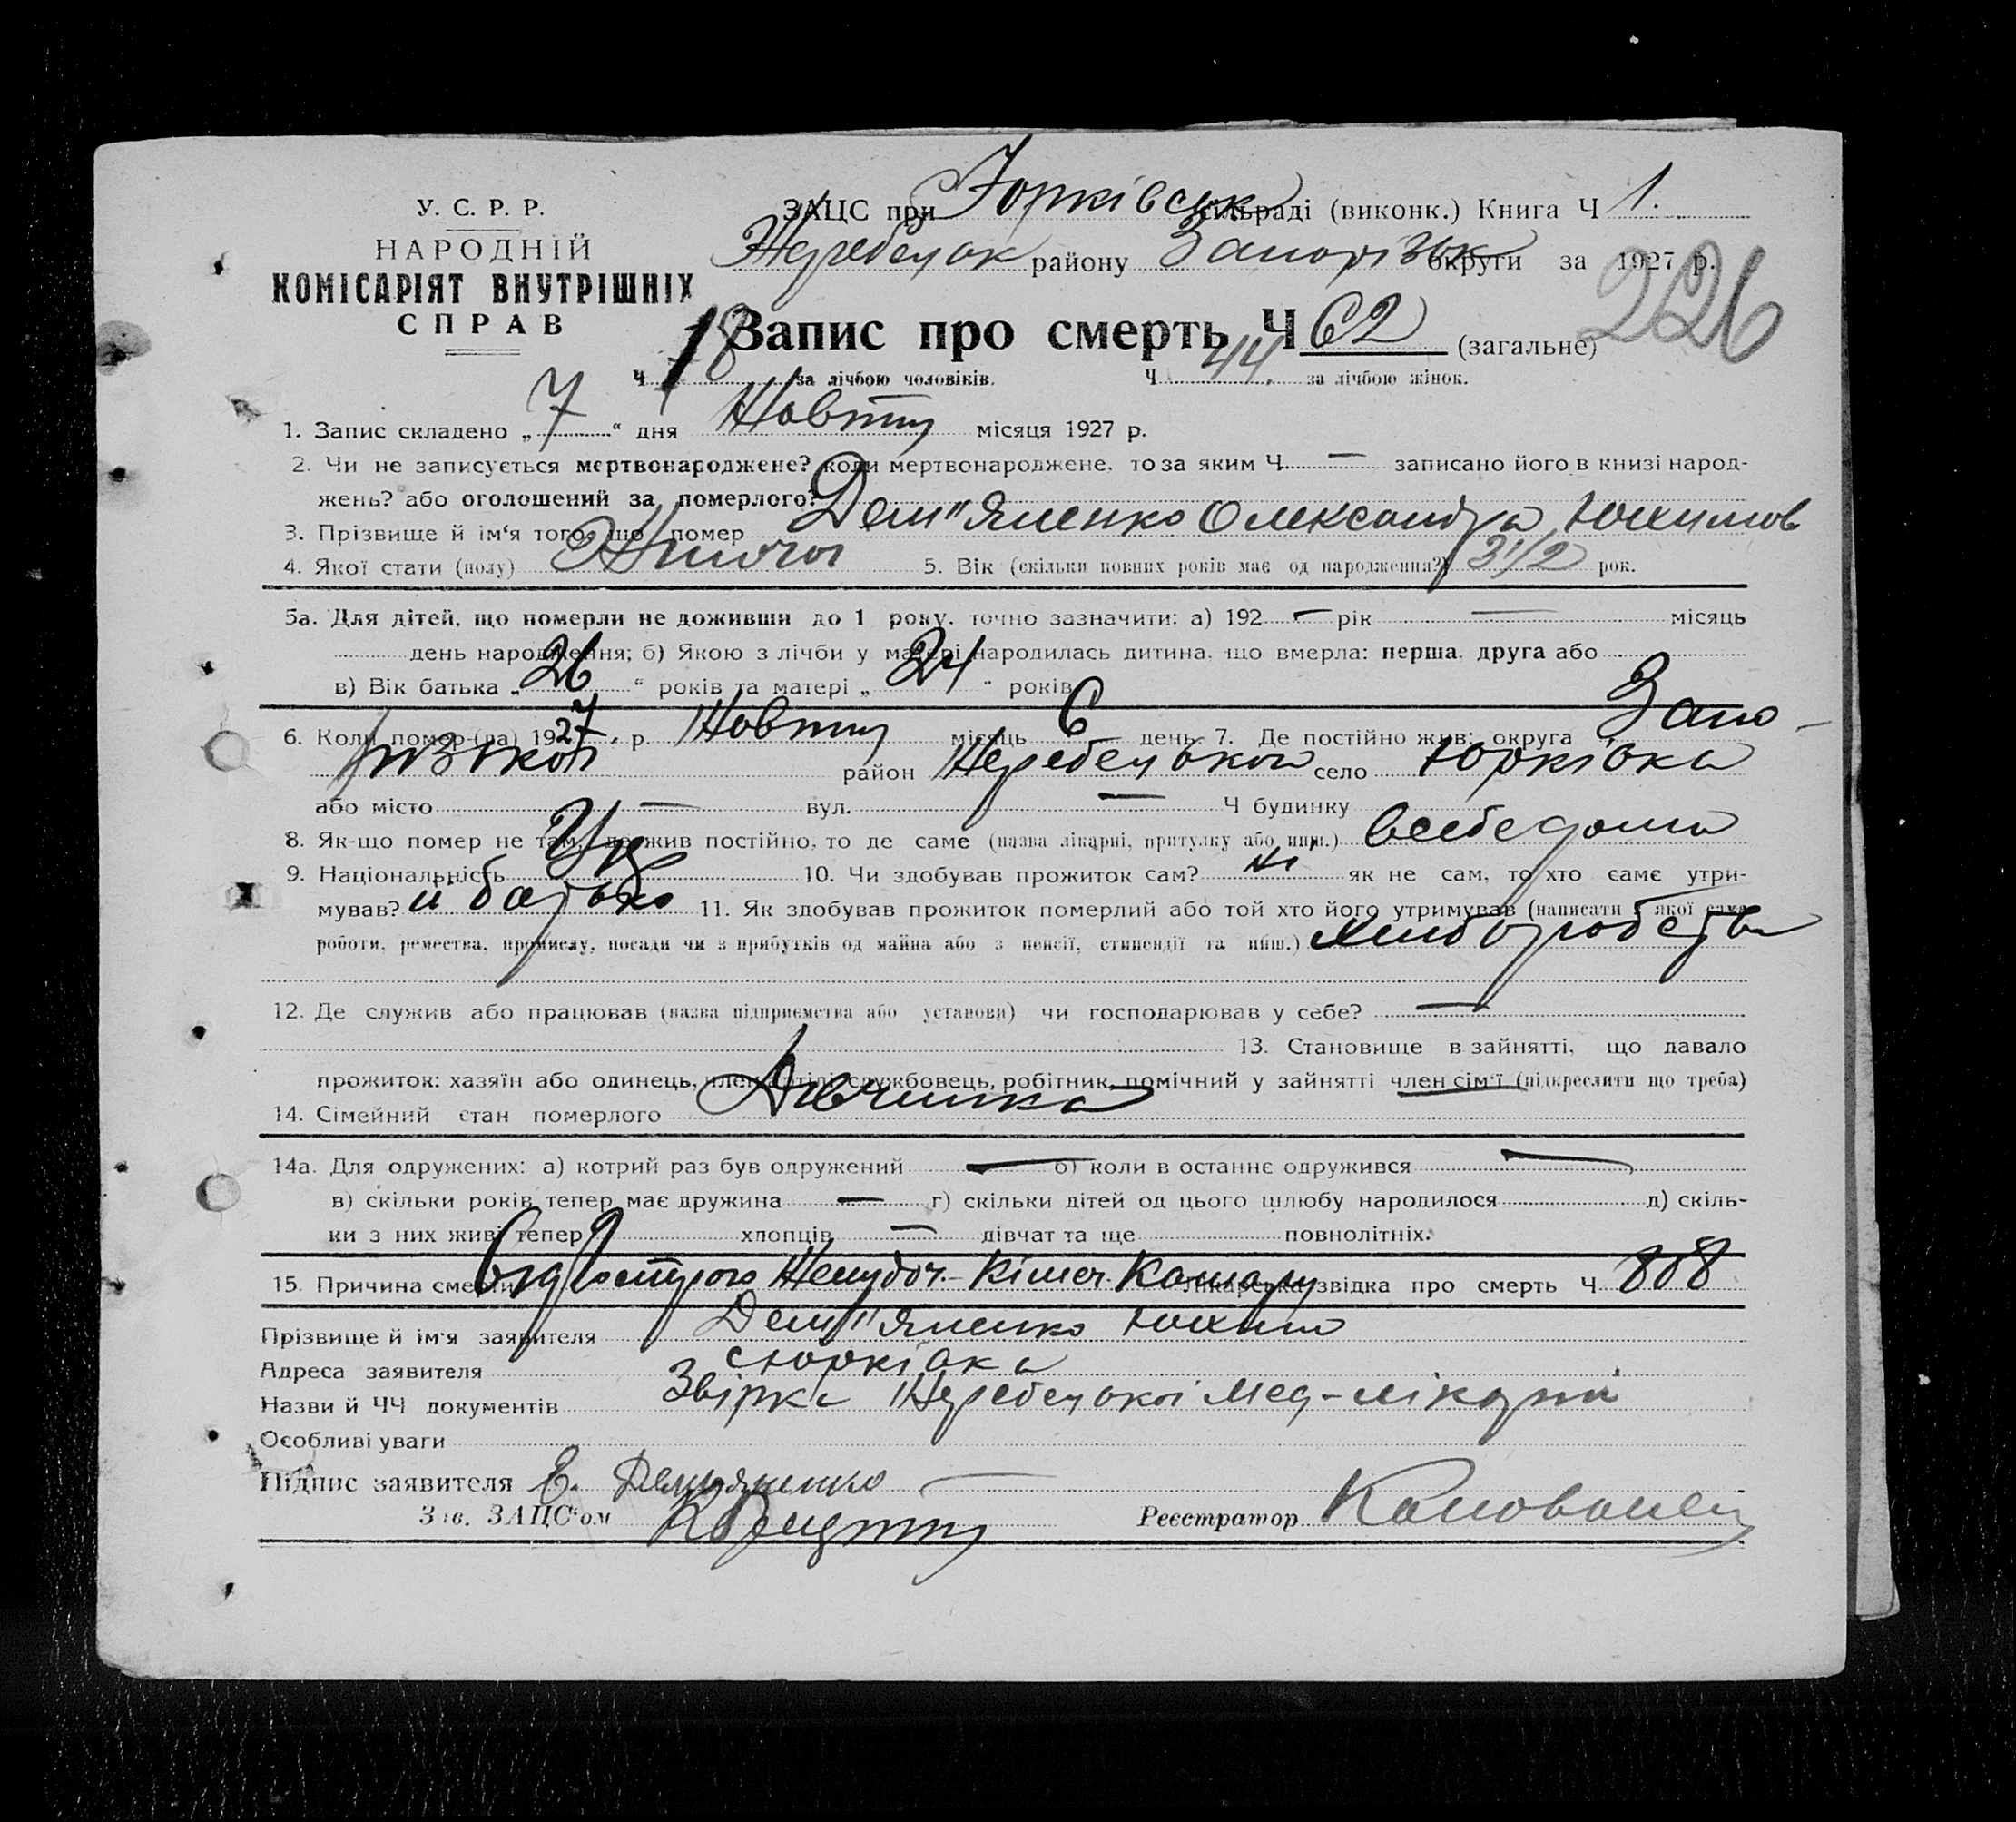 У. С. Р. Р.
НАРОДНІЙ
КОМІСАРІЯТ ВНУТРІШНІХ
СПРАВ
ЗАЦС при Юрківськ сільраді (виконк.) Книга Ч 1.
Жеребецьк району Запорізьк округи за 1927 р.
226
Запис про смерть Ч 62 (загальне)
Ч 18 за лічбою чоловіків. Ч 44. за лічбою жінок.
1. Запис складено „ 7 “ дня Жовтня місяця 1927 р.
2. Чи не записується мертвонароджене? коли мертвонароджене, то за яким Ч — записано його в книзі народ-
жень? або оголошений за померлого?
3. Прізвище й ім‘я того, що помер Дем"яненко Олександра Юхимов
4. Якої стати (полу) Жіночої 5. Вік (скільки повних років має од народження?) 3 1/2 рок.
5а. Для дітей, що померли не доживши до 1 року, точно зазначити: а) 192 — рік — місяць
день народження; б) Якою з лічби у матері народилась дитина, що вмерла: перша, друга або
в) Вік батька „ 26 “ років та матері „ 24 “ років
6. Коли помер-(ла) 1927 р. Жовтня місяць 6 день 7. Де постійно жив: округа Запо-
різької район Жеребецької село Юрківка
або місто — вул. — Ч будинку
8. Як-що помер не там, де жив постійно, то де саме (назва лікарні, притулку або инш.) всебе дома
9. Національність Укр 10. Чи здобував прожиток сам? ні як не сам, то хто саме утри-
мував? її батько 11. Як здобував прожиток померлий або той хто його утримував (написати з якої саме
роботи, ремества, промислу, посади чи з прибутків од майна або з пенсії, стипендії та инш.) хліборобство
12. Де служив або працював (назва підприємства або установи) чи господарював у себе? —
13. Становище в зайнятті, що давало
прожиток: хазяїн або одинець, член артілі, службовець, робітник, помічний у зайнятті член сім‘ї (підкреслити що треба)
14. Сімейний стан померлого Дівчинка
14а. Для одружених: а) котрий раз був одружений — б) коли в останнє одружився —
в) скільки років тепер має дружина — г) скільки дітей од цього шлюбу народилося д) скіль-
ки з них живі тепер хлопців — дівчат та ще повнолітніх.
15. Причина смерти від гострого Желудоч.- Кішеч. Катару Лікарська звідка про смерть Ч 808
Прізвище й ім‘я заявителя Дем"яненко Юхим
Адреса заявителя с Юрківка
Назви й ЧЧ документів Звірка Жеребецької Мед-лікарні
Особливі уваги
Підпис заявителя Е. Демьяненко
Зав. ЗАЦС‘ом Реєстратор